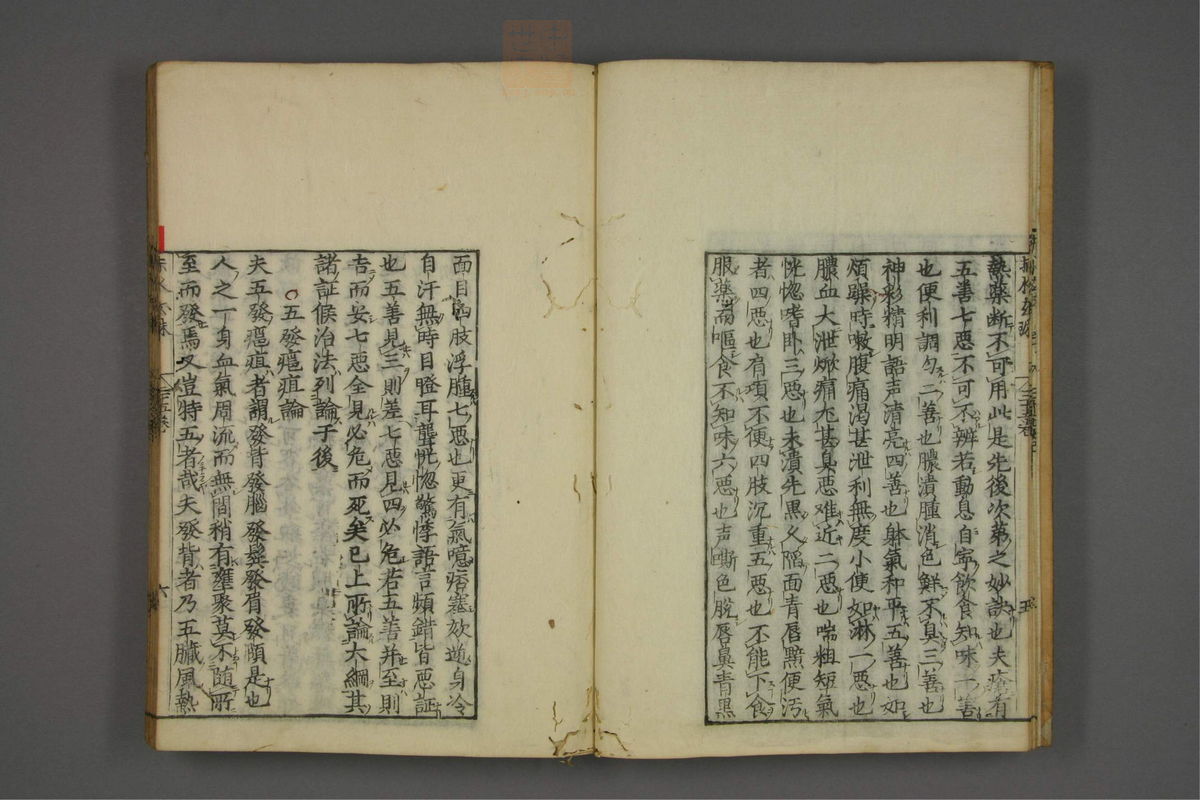 熱藥断不可用此是先後次第之妙訣也夫瘡有
五善七惡不可不辨若動息自寧飲食知味一善
也便利調匀二善也膿潰腫消色鮮不臭三善也
神彩精明語声清亮四善也躰氣和平五善也如
煩躁時嗽腹痛渴甚泄利無度小便如淋一惡也
膿血大泄焮痛尤甚臭惡难近二惡也喘粗短氣
恍惚嗜卧三惡也未潰先黒久陷面青唇黯便汚
者四惡也肩項不便四肢沉重五惡也不能下食
服藥而嘔食不知味六惡也声嘶色脱唇鼻青黒
面目四肢浮腫七惡也更有氣噫痞塞欬逆身冷
自汗無時目瞪耳聾恍惚驚悸語言頻錯皆惡証
也五善見三則差七惡見四必危若五善并至則
吉而安七惡全見必危而死矣已上所論大綱其
諸証候治法列論于後
○五發癰疽論
夫五發癰疽者謂發背發腦發鬂發眉發頤是也
人之一身血氣周流而無間稍有壅聚莫不随所
至而發焉又豈特五者哉夫發背者乃五臟風熱